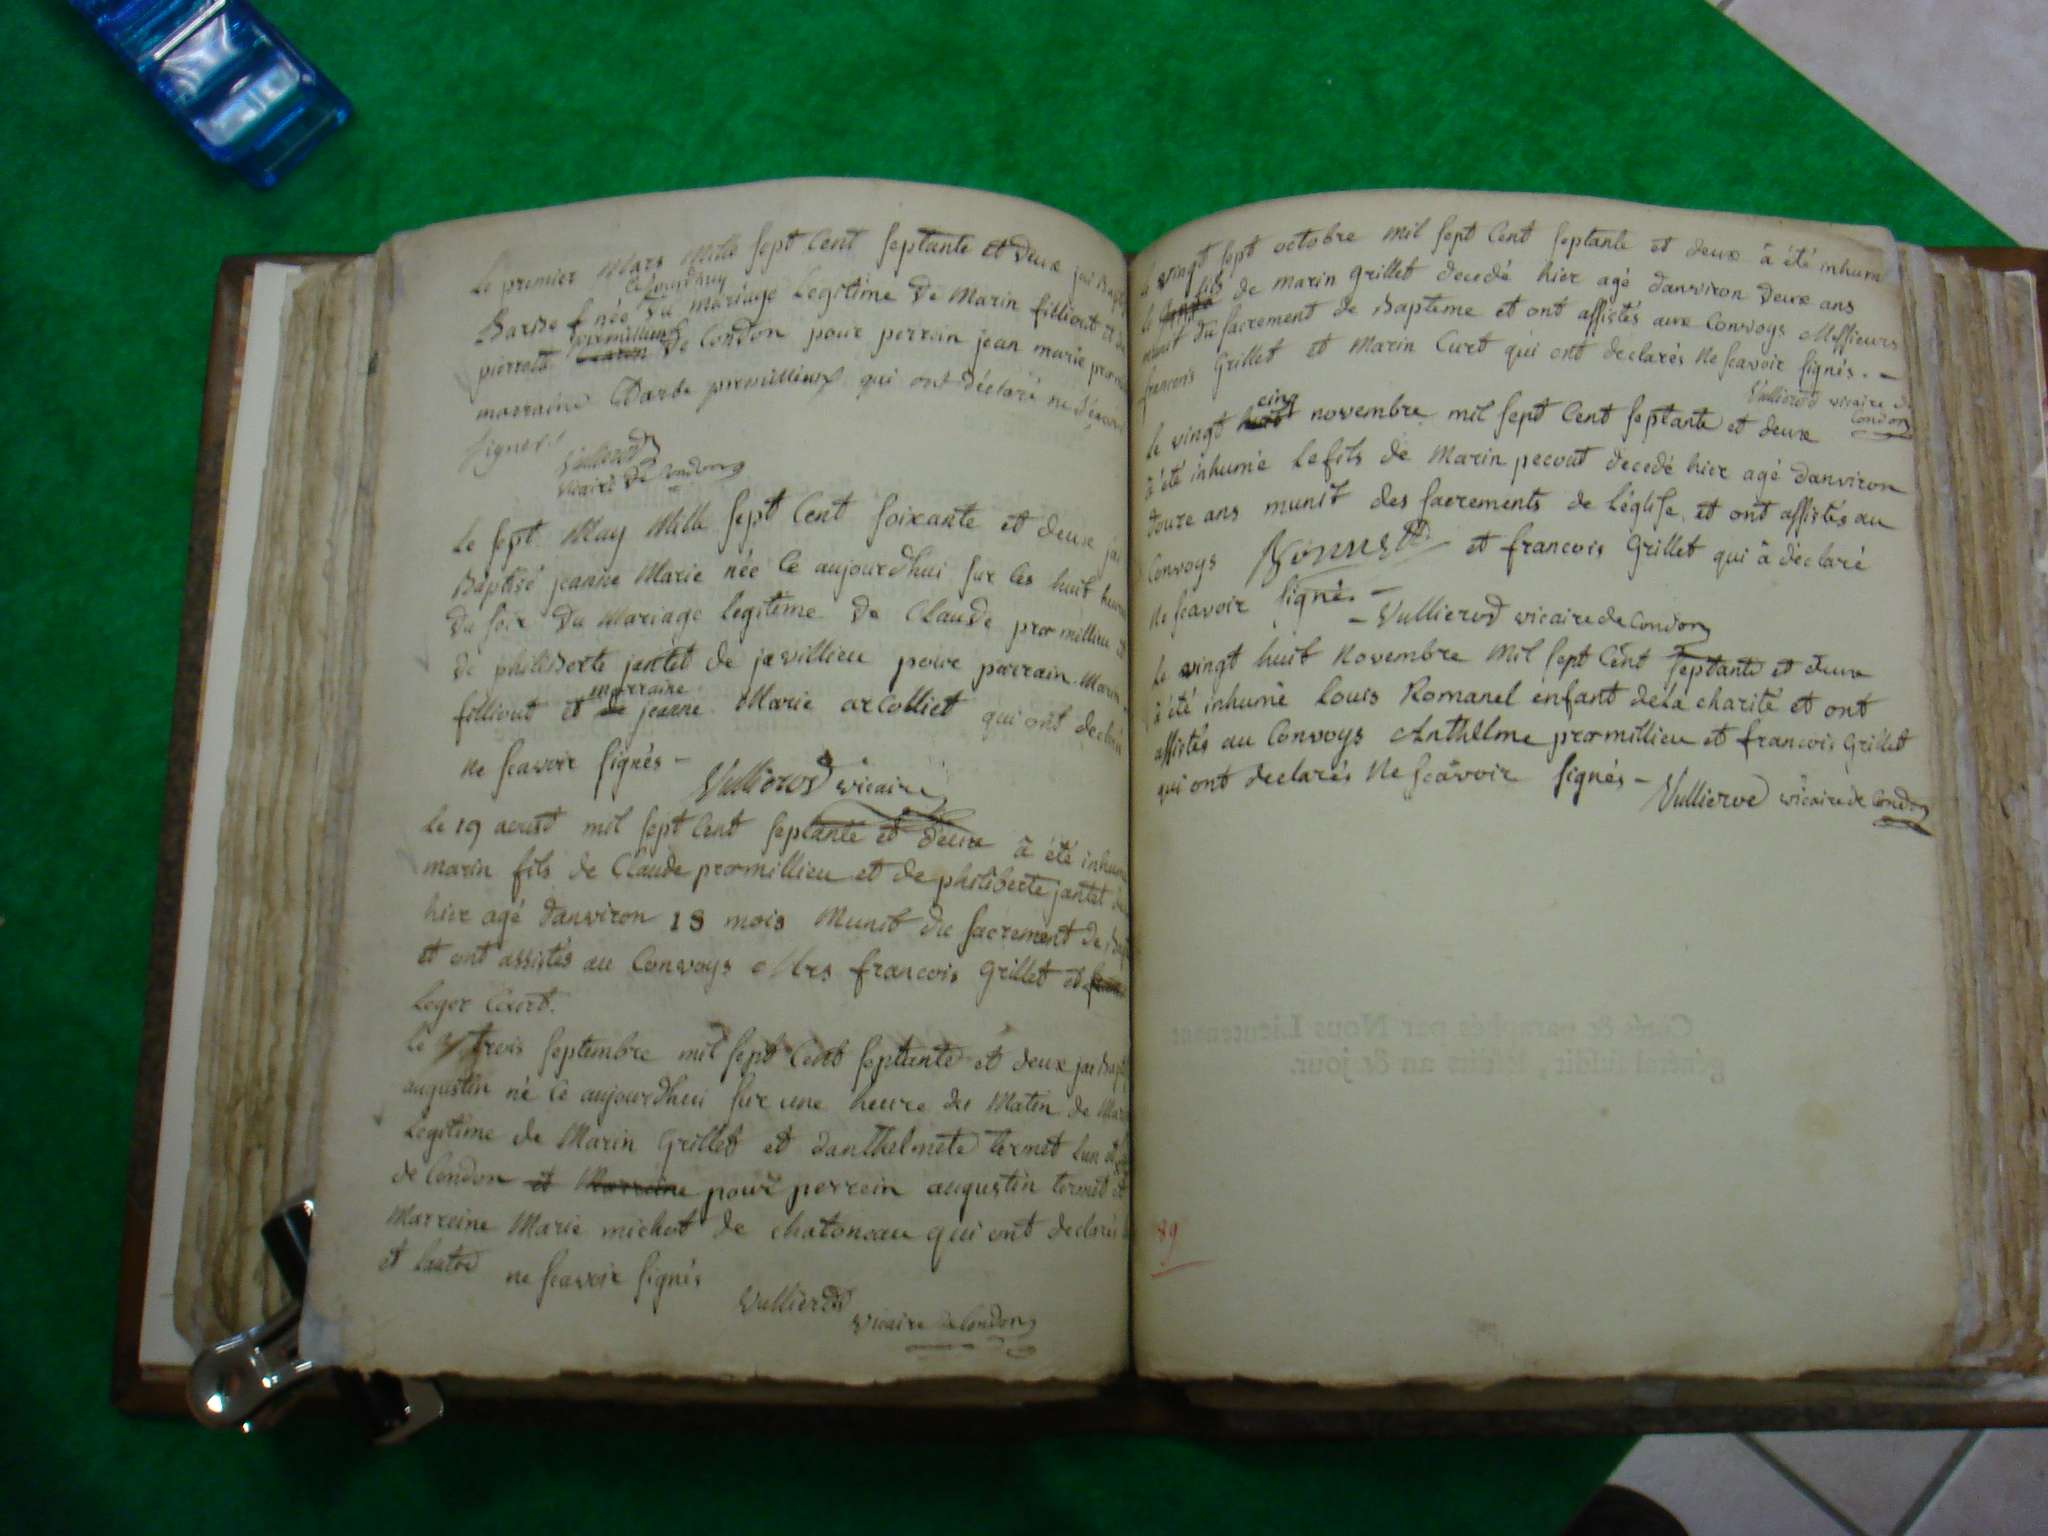 Le premier Mars Mille sept Cent septante et Deux jai Bapt
ce jourdhuy
Barbe née du mariage Legitime De Marin filliout et de
promillieu
pierrett de Condon pour perrain jean marie prom
marraine Barbe promillieux qui ont déclaré ne sçavoir
signer
Vullierod
vicaire de Condon
Le sept May Mille sept Cent soixante et deux jai
Baptisé jeanne Marie née Ce aujourdhui sur les huit heures
du soir Du Mariage legitime De Claude promillieu et
de philiberte jantet de javillieu pour parrain Marin
marraine
filliout et de jeanne Marie arcolliet qui ont declarés
Ne scavoir signés -
Vullierod vicaire
Le 19 aoust mil sept Cent septante et deux à été inhumé
marin fils de Claude promillieu et de philiberte jantet de
hier agé danviron 18 mois Munit du sacrement de Bapt
et ont assistés au Convoys Mrs francois Grillet et
Leger Curt.
Le trois septembre mil sept Cent septante et deux jai Bapt
augustin né Ce aujourdhui sur une heure du Matin de Mar
Legitime de Marin Grillet et danthelmete termet lun et
de Condon et Marreine pour perrein augustin termet et
Marreine Marie michot de chatonsau qui ont declarés
et lautre ne scavoir signés
Vullierod
vicaire de Condon
Le vingt sept octobre mil sept Cent septante et deux à été inhum
fils
le de marin grillet decedé hier agé danviron deux ans
munit du sacrement de Bapteme et ont assistés aux Convoys Messieurs
francois Grillet et Marin Curt qui ont declarés Ne scavoir signés. -
Vullierod vicaire de
Condon
cinq
le vingt huit novembre mil sept Cent septante et deux
à été inhumé Le fils de Marin pecout decedé hier agé danviron
douze ans munit des sacrements de l'église, et ont assistés au
Convoys et francois Grillet qui à déclaré
Ne scavoir signé. -
- Vullierod vicaire de Condon
Le vingt huit Novembre Mil sept Cent septante et deux
à été inhumé Louis Romanel enfant dela charité et ont
assistés au Convoys Anthelme promillieu et francois Grillet
qui ont declarés Ne scavoir signés - Vullierod vicaire de Condon
Cotés & paraphés par Nous Lieutenant
général susdit, lesdits an & jour.
89